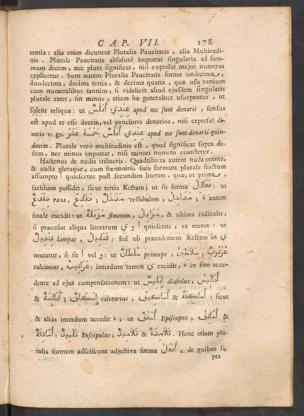 CAP. VII. 178
rentia: alia enim dicuntar Pluralia Paucitatis, alia Multitudi-
nis. Plurale Paucitatis absolutè importat singularia ad sum-
mum decem, nec plura significat, nisi expressè major numerus
explicetur. Sunt autem Pluralia Paucitatis forma undecima,
duodecima, decima tertia, & decima quarta, quæ usu veniunt
cum numeralibus tantùm, si videlicet aliud ejusdem singularis
plurale extet, sin minùs, etiam ita generaliter usurpantur, ut
solent reliqua: ut عِنْدِي أَفْلُسٌ apud me sunt denarii, sensus
est apud te esse decem, vel pauciores denarios, nisi expressè di-
xeris e. gr. عِنْدِي أَفْلُسٌ خَمْسَةَ عَشَرَ apud me sunt denarii quin-
decim. Plurale verò multitudinis est, quod significat supra de-
cem, nec minus importat, nisi minori numero coarctetur.
Hactenus de nudis trilateris. Quadrilitera autem nuda omnia,
& aucta pleraque, cum terminorum suis formant plurale fractum
assumpto ا quiescente post secundam literam, quæ, ut prima,
fathham possidet, sicut tertia Kesram; ut sit forma فَعَالِلُ: ut
بَرَاقِعُ, بُرْقُعٌ, مَنَادِيلُ vexillum, مِنْدِيلٌ, & ة autem
finale excidit: ut مَزْبَلَةٌ fimetum, مَزَابِلُ, & ultima radicalis,
si præcedat aliqua literarum و ي ا quiescens, ea manet: ut
قِنْدِيلٌ lampas, قَنَادِيلُ, sed ob præcedentem Kesram in ي
mutatur, si sit ا vel و: ut سُلْطَانٌ princeps, سَلَاطِينُ,
عَرَاقِيبُ: interdum tamen ي excidit, & in fine acce-
dente ad ejus compensationem: ut إِبْلِيسُ diabolus, أَبَالِيسُ
& أَبَالِسَةٌ, إِسْكَافٌ calcearius, أَسَاكِيفُ & أَسَاكِفَةٌ: sicut
& aliàs interdum accedit ة; ut أُسْقُفٌ Episcopus, أَسَاقِفُ &
أَسَاقِفَةٌ, تِلْمِيذٌ Discipulus, تَلَامِيذُ & تَلَامِذَةٌ. Hanc etiam plu-
ralis formam adsciscunt adjectiva formæ أَفْعَلُ, de quibus su-
pra